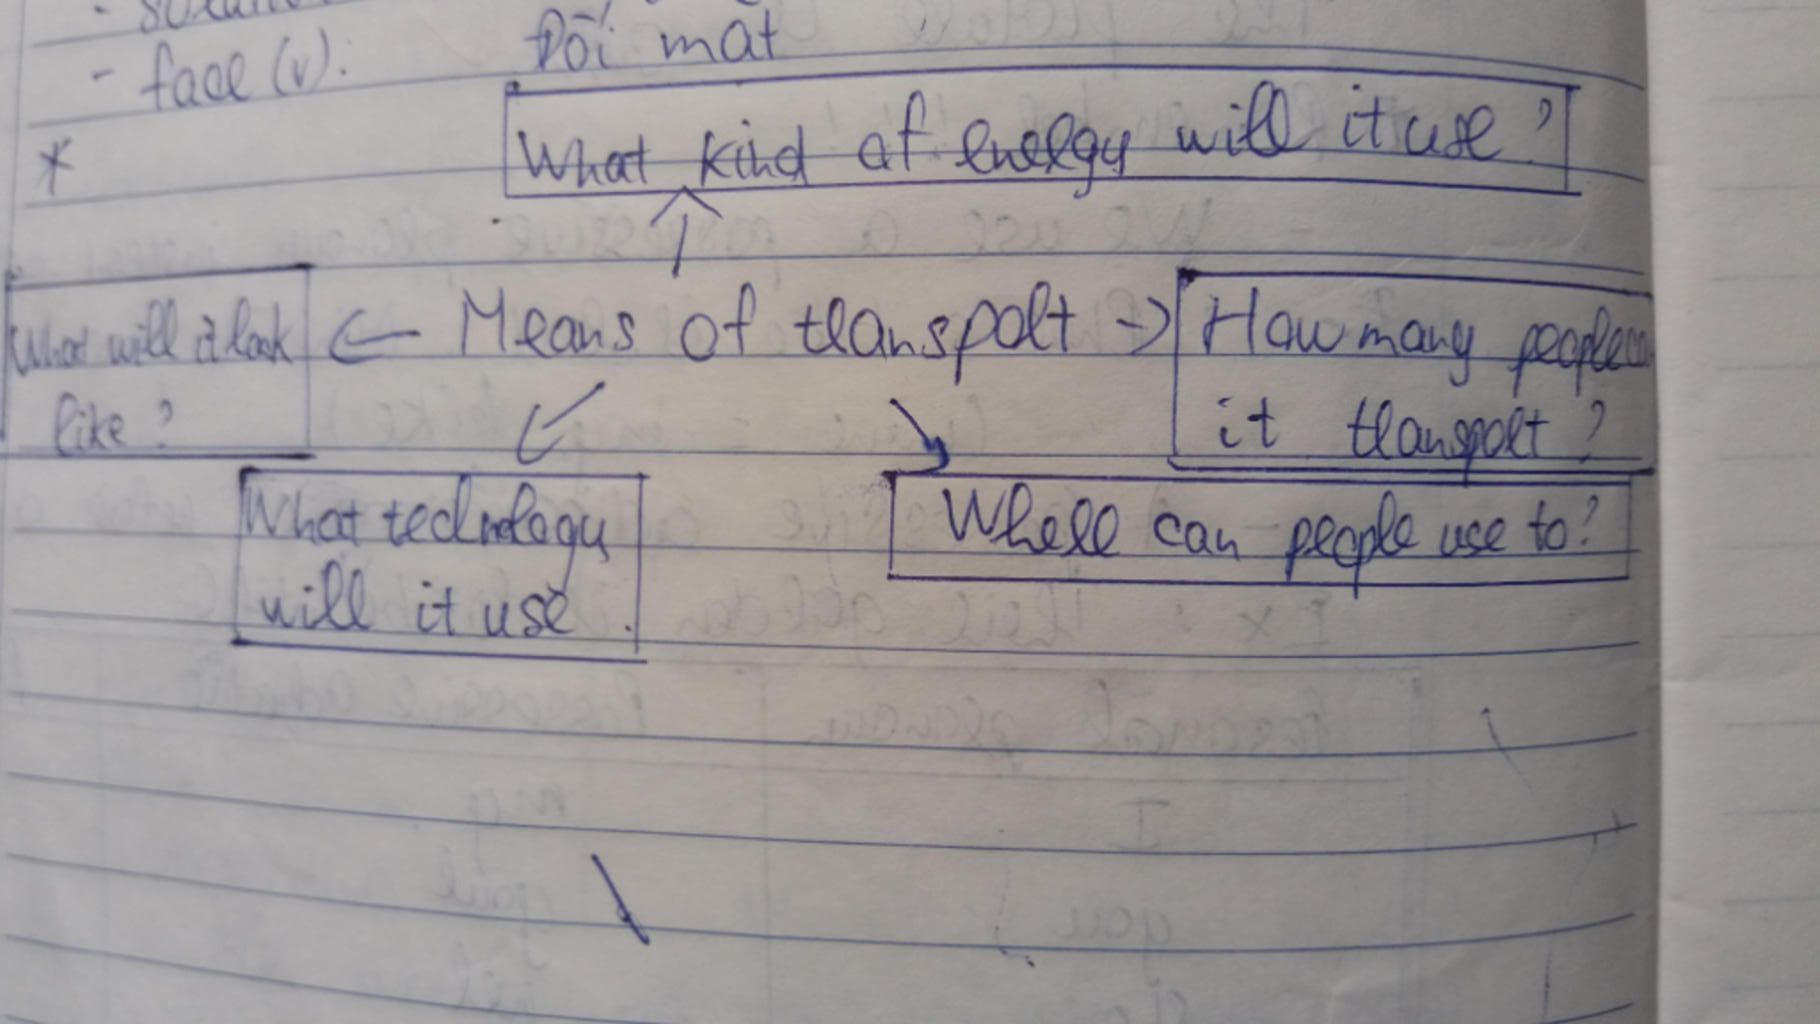 - face (v). Đối mặt
*
What kind of energy will it use?
What will it look
like?
← Means of transport →
How many people can
it transport?
What technology
will it use.
Where can people use to?